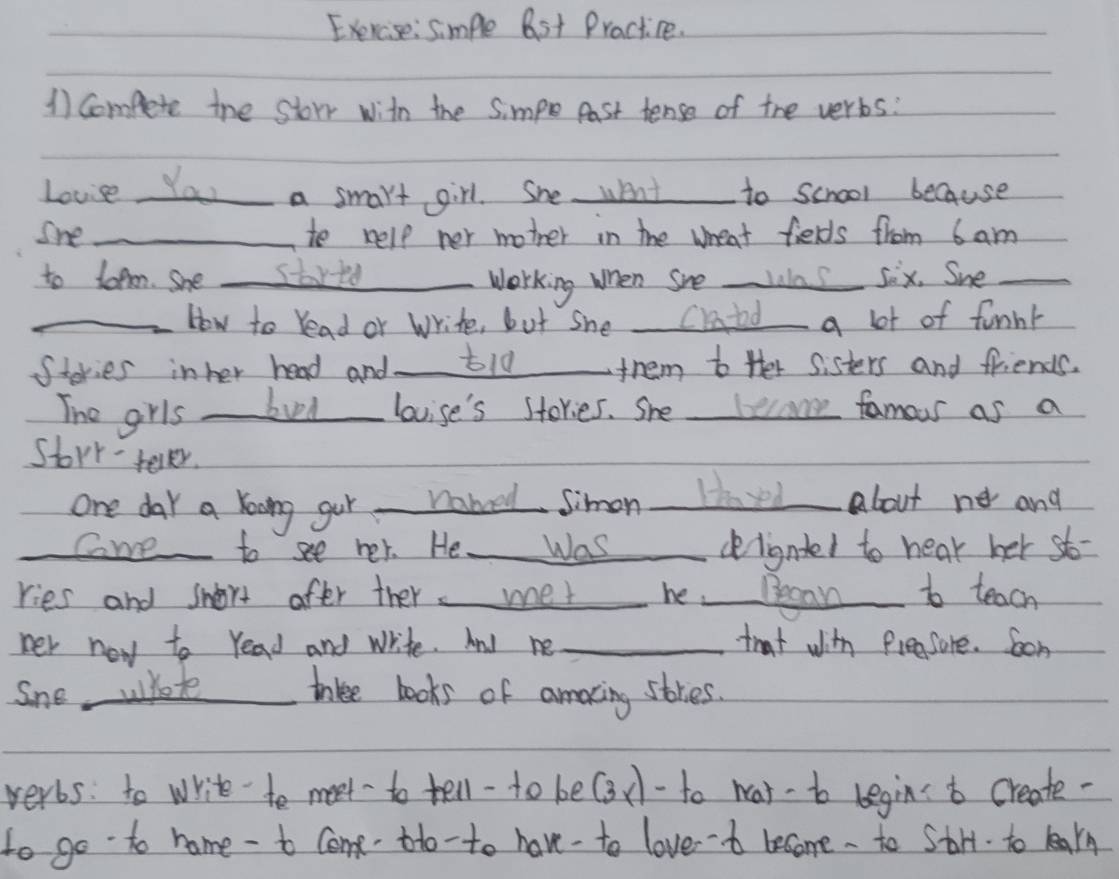 Exercise: Simple Past Practice.
1) Complete the story with the simple past tense of the verbs:
Louise ______ a smart girl. She went to school because
She ______ to help her mother in the wheat fields from 6 am
to 6 pm. She started working when she was six. She ____
______ How to read or write, but she created a lot of funny
Stories in her head and told them to Her sisters and friends.
The girls loved louise's stories. She became famous as a
Story-teller.
One day a young guy named Simon about her and
Came to see her. He Was delighted to hear her sto-
ries and short after they met he Began to teach
her how to read and write. And he ______ that with Pleasure. Soon
She wrote three books of amazing stories.
verbs: to write - to meet - to tell - to be (3x) - to hear - to begin - to create -
to go - to name - to come - to do - to have - to love - to become - to start - to learn